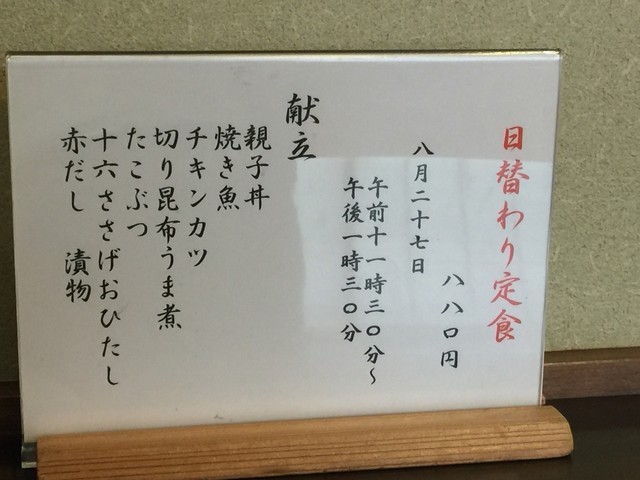 日替わり定食
八八〇円
八月二十七日
午前十一時三〇分～
午後一時三〇分
献立
親子丼
焼き魚
チキンカツ
切り昆布うま煮
たこぶつ
十六ささげおひたし
赤だし　漬物